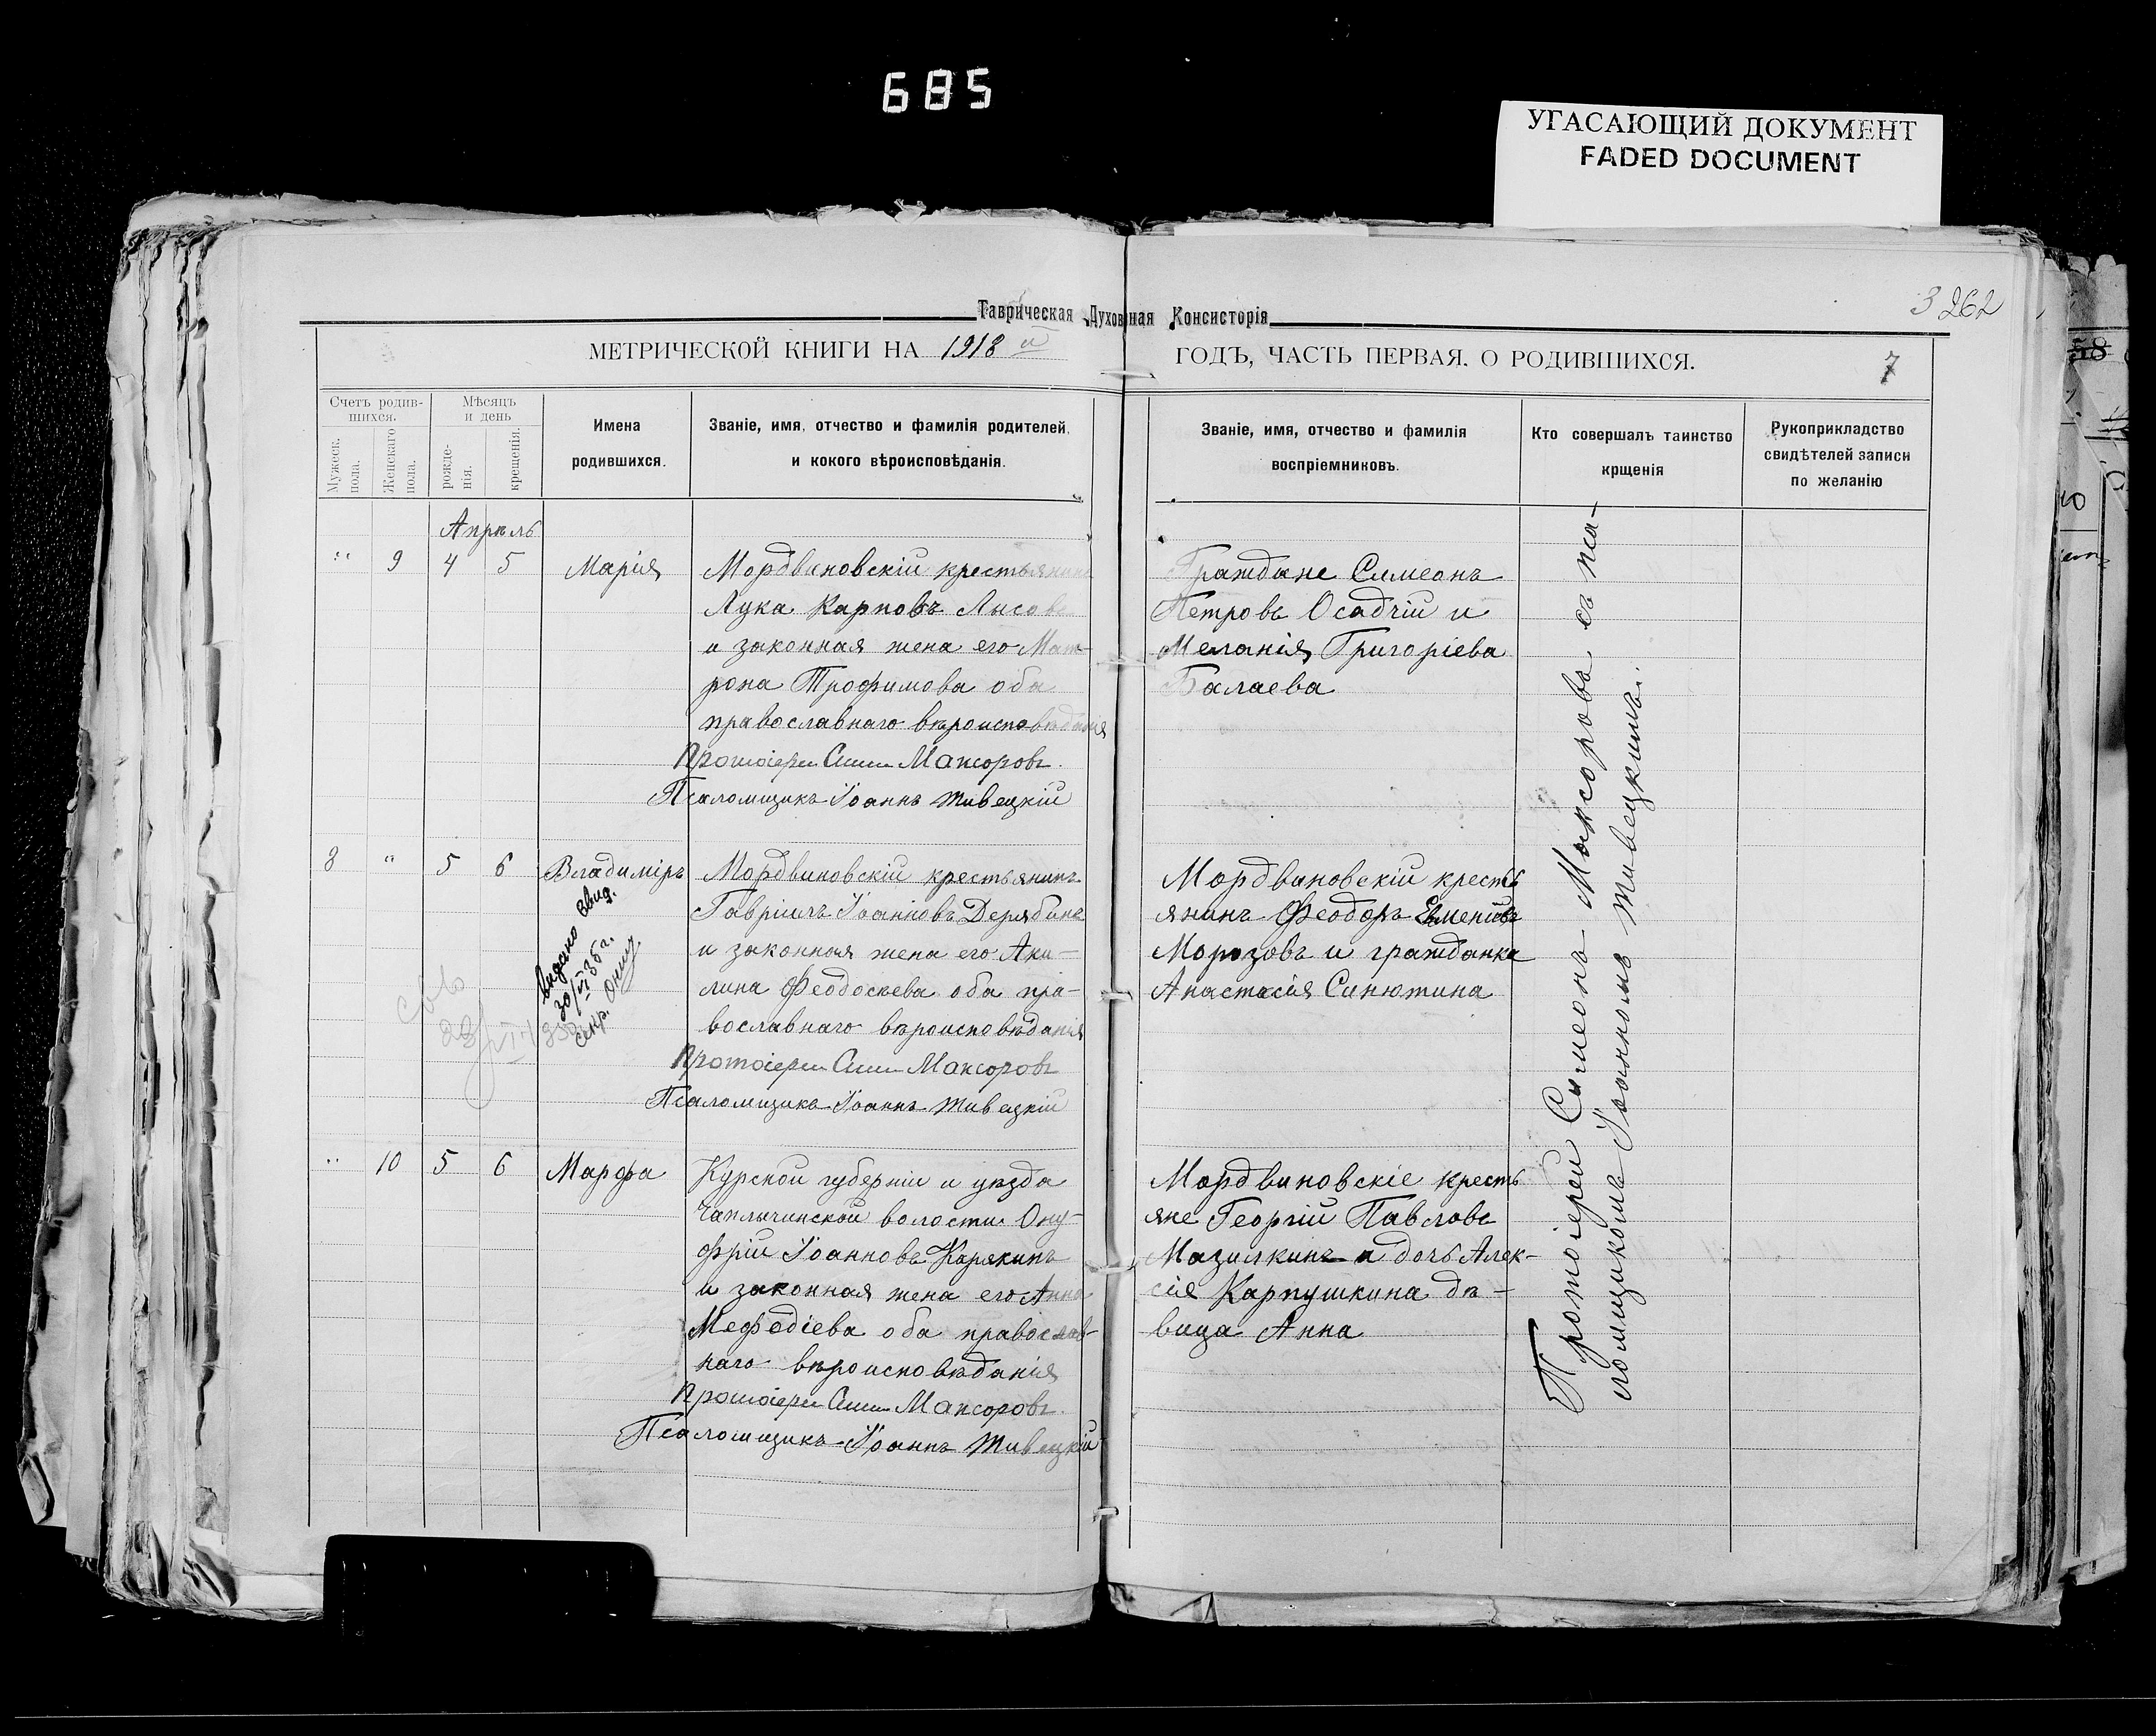 685
УГАСАЮЩИЙ ДОКУМЕНТ
FADED DOCUMENT
3 262
Таврическая Духовная Консисторія
МЕТРИЧЕСКОЙ КНИГИ НА 1918 й ГОДЪ, ЧАСТЬ ПЕРВАЯ, О РОДИВШИХСЯ.
7
Счетъ родив-
шихся.
Мужеск.
пола.
Женскаго
пола.
Мѣсяцъ
и день
рожде-
нія.
крещенія.
Имена
родившихся.
Званіе, имя, отчество и фамилія родителей,
и кокого вѣроисповѣданія.
Званіе, имя, отчество и фамилія
воспріемниковъ.
Кто совершалъ таинство
крщенія
Рукоприкладство
свидѣтелей записи
по желанію
Апрѣль
" 9 4 5 Марія
Мордвиновскій крестьянинъ
Лука Карповъ Лысовъ
и законная жена его Мат-
рона Трофимова оба
православнаго вѣроисповѣданія
Протоіерей Симеонъ Мансоровъ
Псаломщикъ Іоаннъ Тивецкій
Граждане Симеонъ
Петровъ Осадчій и
Меланія Григоріева
Балаева
8 " 5 6 Владиміръ
Мордвиновскій крестьянинъ
Гавріилъ Іоанновъ Дерябинъ
и законная жена его Аки-
лина Феодосіева оба пра-
вославнаго вѣроисповѣданія
Протоіерей Симеонъ Мансоровъ
Псаломщикъ Іоаннъ Тивецкій
выдано свид.
20/VI 35г.
секр.
Мордвиновскій кресть
янинъ Феодоръ Евменіевъ
Морозовъ и гражданка
Анастасія Синютина
" 10 5 6 Марфа
Курской губерніи и уѣзда
Чаплыгинской волости Ону-
фрій Іоанновъ Карякинъ
и законная жена его Анна
Мефодіева оба православ-
наго вѣроисповѣданія
Протоіерей Симеонъ Мансоровъ
Псаломщикъ Іоаннъ Тивецкій
Мордвиновскіе кресть
яне Георгій Павловъ
Мазилкинъ и дочь Алек-
сія Карпушкина дѣ-
вица Анна
Протоіерей Симеонъ Мансоровъ съ пса-
ломщикомъ Іоанномъ Тивецкимъ.